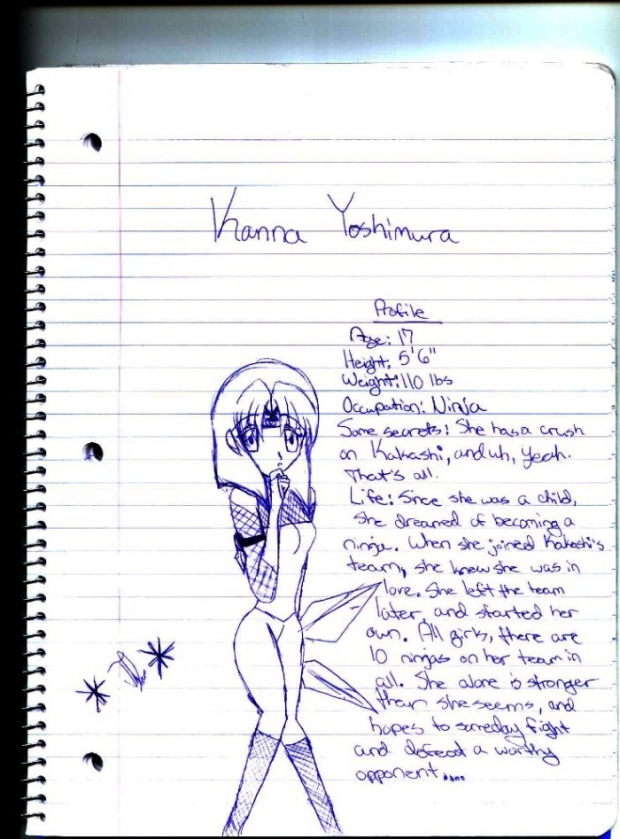 Kanna Yoshimura
Profile
Age: 17
Height: 5'6"
Weight: 110 lbs
Occupation: Ninja
Some secrets: She has a crush
on Kakashi, and uh, yeah.
That's all.
Life: Since she was a child,
she dreamed of becoming a
ninja. When she joined Kakashi's
team, she knew she was in
love. She left the team
later, and started her
own. All girls, there are
10 ninjas on her team in
all. She alone is stronger
than she seems, and
hopes to someday fight
and defeat a worthy
opponent....